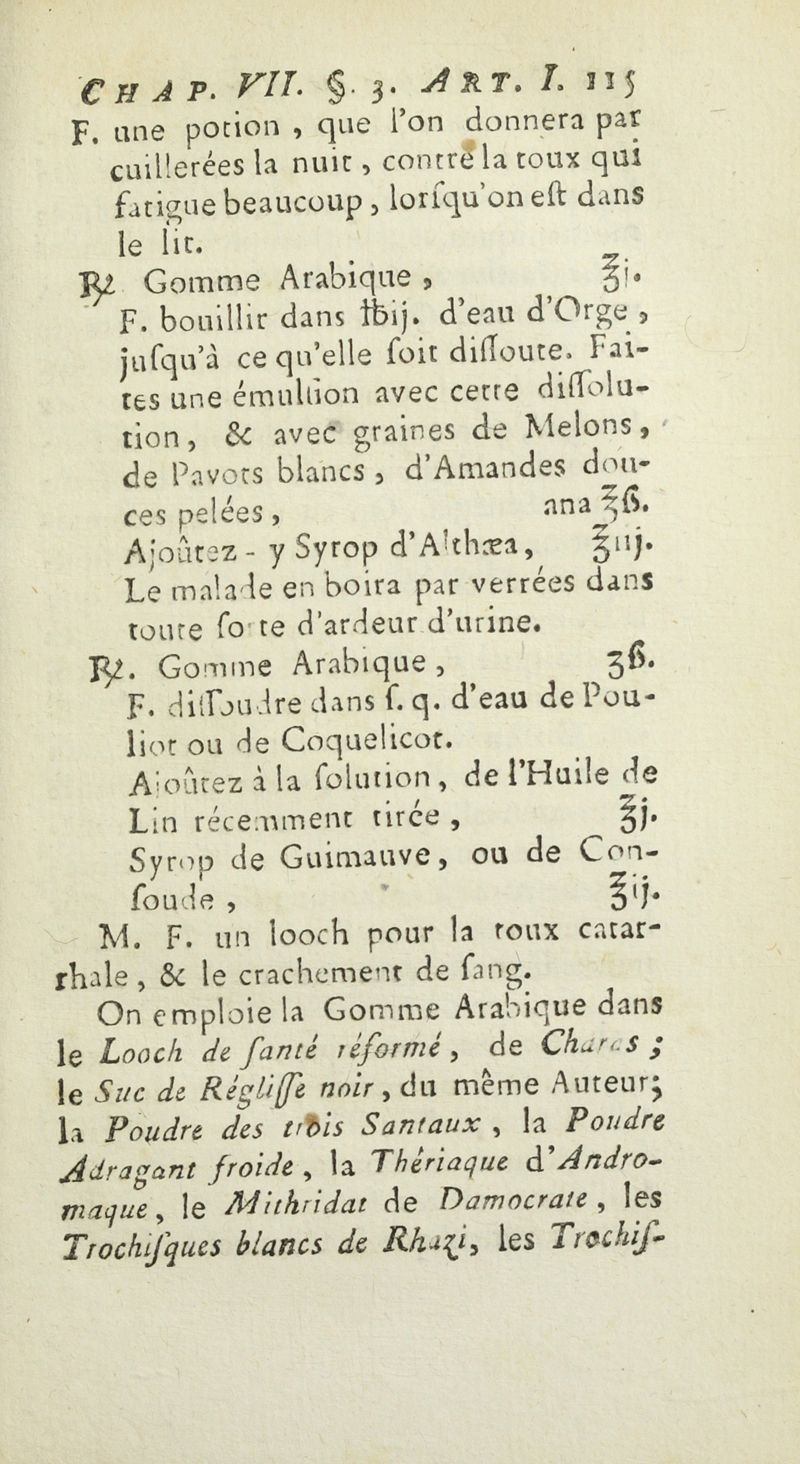 CHAP. VII. §. 3. ART. I. 115
F. une potion , que l'on donnera par
cuillerées la nuit , contre la toux qui
fatigue beaucoup , lorſqu'on eſt dans
le lit.
℞ Gomme Arabique , ℥i.
F. bouillir dans ℔ij. d'eau d'Orge ,
juſqu'à ce qu'elle ſoit diſſoute. Fai-
tes une émulſion avec cette diſſolu-
tion , & avec graines de Melons ,
de Pavots blancs , d'Amandes dou-
ces pelées , ana ℥ß.
Ajoûtez - y Syrop d'Althæa , ℥iij.
Le malade en boira par verrées dans
toute ſorte d'ardeur d'urine.
℞. Gomme Arabique , ʒß.
F. diſſoudre dans ſ. q. d'eau de Pou-
liot ou de Coquelicot.
Ajoûtez à la ſolution , de l'Huile de
Lin récemment tirée , ℥j.
Syrop de Guimauve , ou de Con-
ſoude , ℥ij.
M. F. un looch pour la toux catar-
rhale , & le crachement de ſang.
On emploie la Gomme Arabique dans
le Looch de ſanté réformé , de Charas ;
le Suc de Régliſſe noir , du même Auteur ;
la Poudre des trois Santaux , la Poudre
Adragant froide , la Thériaque d'Andro-
maque , le Mithridat de Damocrate , les
Trochiſques blancs de Rhazi , les Trochiſ-